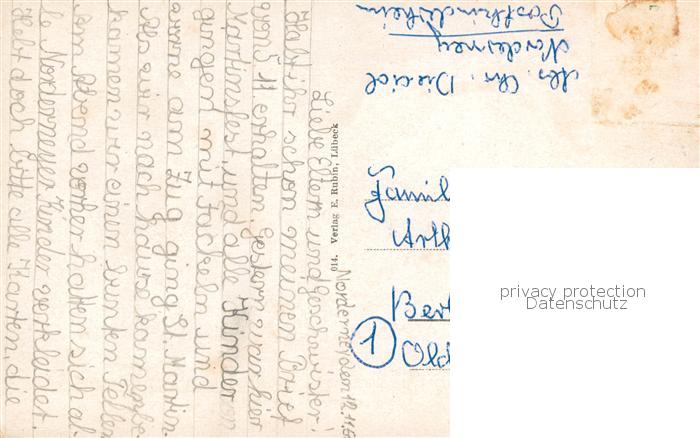 Norderney, den 12.11.5
Liebe Eltern und Geschwister!
Habt ihr schon meinen Brief
von 11 erhalten. Gestern war hier
Martinsfest, und alle Kinder
gingen mit Fackeln und
vorne am Zug ging St. Martin.
Als wir nach hause kamen, be-
kamen wir einen bunten Teller.
Am Abend vorher hatten sich al-
le Norderneyer Kinder verkleidet.
Hebt doch bitte alle Karten, die
014. Verlag E. Rubin, Lübeck
Abs. Chr.
Norderney
Famil
Arth
Ber
1
Old
privacy protection
Datenschutz